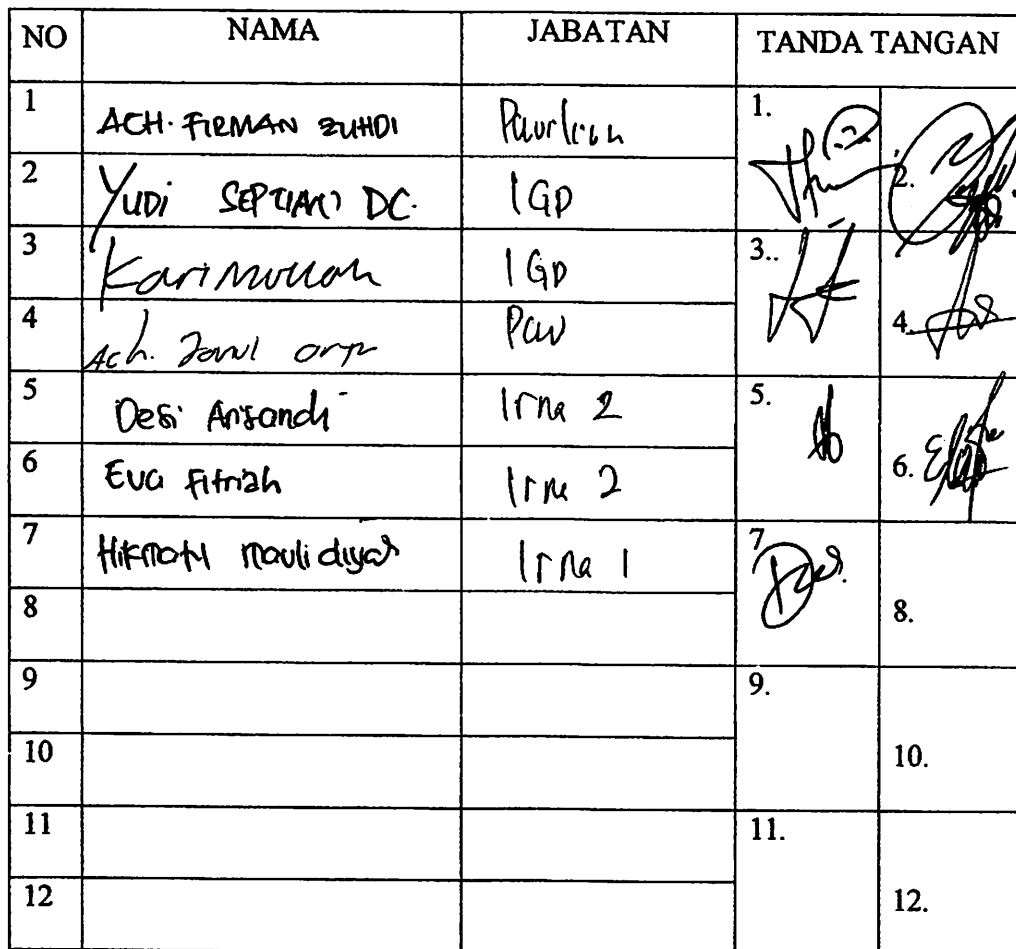 NO NAMA JABATAN TANDA TANGAN
1 ACH. FIRMAN ZUHDI Pavrliun 1.
2 YUDI SEPTIAN DC. IGD 2.
3 Karimullah IGD 3..
4 Ach. Pav 4.
5 Desi Arisandi Irna 2 5.
6 Eva Fitriah Irna 2 6.
7 Hikmatul maulidiyah Irna 1 7
8 8.
9 9.
10 10.
11 11.
12 12.